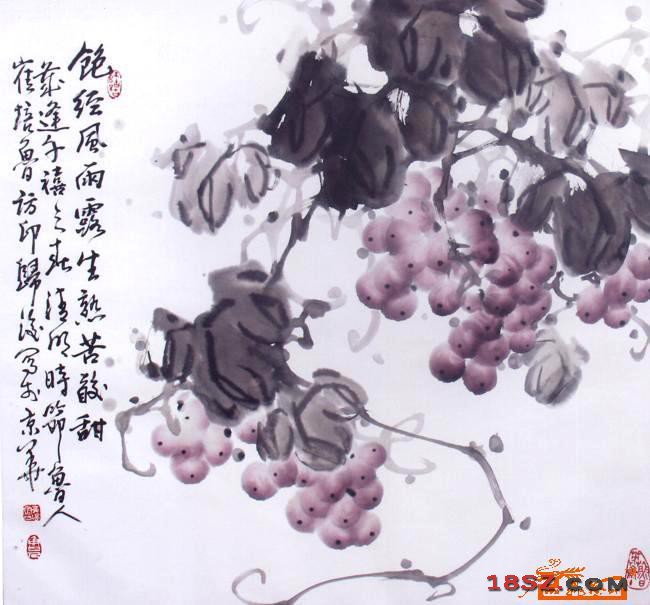 饱经风雨露生熟苦酸甜
岁逢千禧之春清明时节鲁人
崔培鲁访印归后写于京华
18SZ.COM